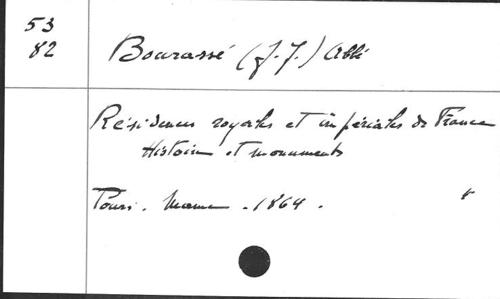 53
82
Bourassé (J.-J.) Abbé
Résidences royales et impériales de France
Histoire et monuments
Tours. Mame. 1864.